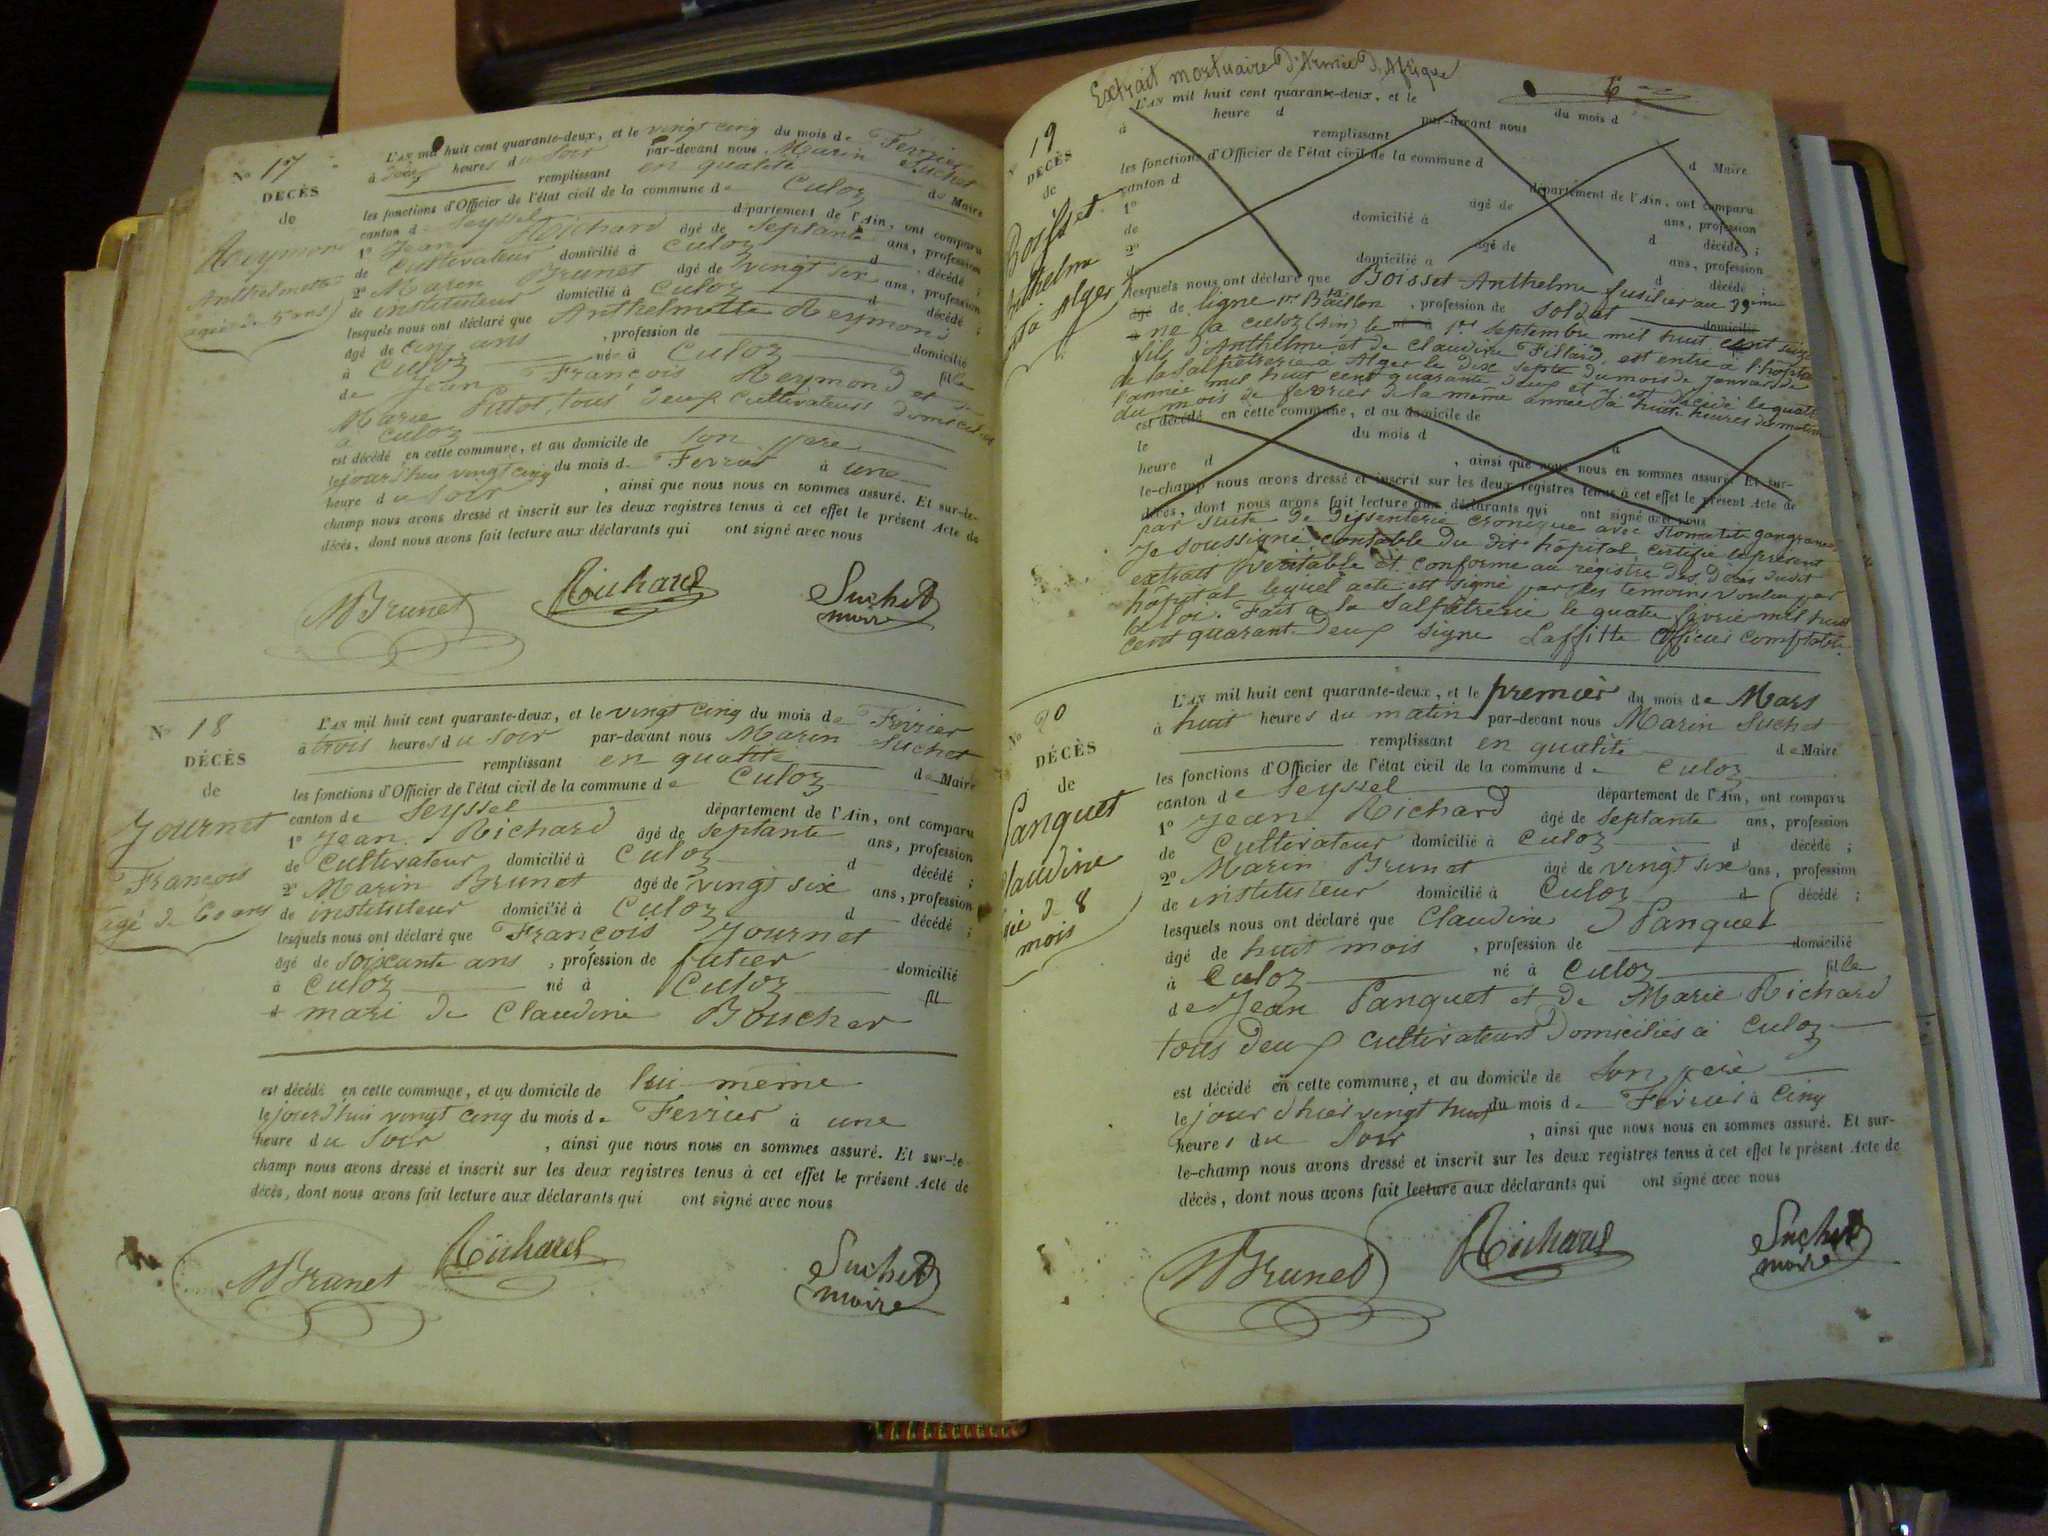 No 17
DÉCÈS
de
Reymond
Anthelmette
agée de 5 ans
L'AN mil huit cent quarante-deux, et le vingt cinq du mois de Fevrier
à heures du soir par-devant nous Marin Suchet
remplissant en qualité de Maire
les fonctions d'Officier de l'état civil de la commune de Culoz
canton de Seyssel département de l'Ain, ont comparu
1o Jean Richard âgé de septante ans, profession
de cultivateur domicilié à Culoz d décédé ;
2o Marin Brunet âgé de vingt six ans, profession
de instituteur domicilié à Culoz d décédé ;
lesquels nous ont déclaré que Anthelmette Reymond
âgé de cinq ans , profession de domicilié
à Culoz née à Culoz fille
de Jean François Reymond et de
Marie Putod, tous deux cultivateurs domiciliés
à Culoz
est décédé en cette commune, et au domicile de son père
le jourd'hui vingt cinq du mois de Fevrier à une
heure du soir , ainsi que nous nous en sommes assuré. Et sur-le-
champ nous avons dressé et inscrit sur les deux registres tenus à cet effet le présent Acte de
décès, dont nous avons fait lecture aux déclarants qui ont signé avec nous
MBrunet Richard Suchet
maire
No 18
DÉCÈS
de
Journet
François
agé de 60 ans
L'AN mil huit cent quarante-deux, et le vingt cinq du mois de Fevrier
à trois heures du soir par-devant nous Marin Suchet
remplissant en qualité de Maire
les fonctions d'Officier de l'état civil de la commune de Culoz
canton de Seyssel département de l'Ain, ont comparu
1o Jean Richard âgé de septante ans, profession
de cultivateur domicilié à Culoz d décédé ;
2o Marin Brunet âgé de vingt six ans, profession
de instituteur domicilié à Culoz d décédé ;
lesquels nous ont déclaré que François Journet
âgé de soixante ans , profession de futier domicilié
à Culoz né à Culoz fil
mari de Claudine Boucher
est décédé en cette commune, et au domicile de lui-même
le jourd'hui vingt cinq du mois de Fevrier à une
heure du soir , ainsi que nous nous en sommes assuré. Et sur-le-
champ nous avons dressé et inscrit sur les deux registres tenus à cet effet le présent Acte de
décès, dont nous avons fait lecture aux déclarants qui ont signé avec nous
MBrunet Richard Suchet
maire
Extrait mortuaire d'Armée d'Afrique
No 19
DÉCÈS
de
Boisset
Anthelme
à Alger
L'AN mil huit cent quarante-deux, et le du mois d
à heure d par-devant nous
remplissant d Maire
les fonctions d'Officier de l'état civil de la commune d
canton d département de l'Ain, ont comparu
1o âgé de ans, profession
de domicilié à d décédé ;
2o âgé de ans, profession
de domicilié à d décédé ;
lesquels nous ont déclaré que Boisset Anthelme fusilier au 39ième
âgé de ligne 1er Bataillon , profession de soldat domicilié
à né à Culoz (Ain) le 1er septembre mil huit cent seize
fils d'Anthelme et de Claudine Fillard, est entré à l'hôpital
de la Salpêtrerie à Alger le dix sept du mois de Janvier de
l'année mil huit cent quarante deux et y est décédé le quatre
du mois de fevrier de la même année à huit heures du matin
est décédé en cette commune, et au domicile de
le du mois d à
heure d , ainsi que nous nous en sommes assuré. Et sur-
le-champ nous avons dressé et inscrit sur les deux registres tenus à cet effet le présent Acte de
décès, dont nous avons fait lecture aux déclarants qui ont signé avec nous
par suite de dissenterie cronique avec stomatite gangrane
Je soussigné contable du dit hôpital certifie le présent
extrait veritable et conforme au registre des décès dudit
hôpital lequel acte est signé par les temoins voulu par
la loi. Fait a la Salpêtrerie le quatre fevrie mil huit
cent quarant-deux signe Laffitte officier comptable
No 20
DÉCÈS
de
Panquet
Claudine
agée de 8
mois
L'AN mil huit cent quarante-deux, et le premier du mois de Mars
à huit heures du matin par-devant nous Marin Suchet
remplissant en qualité de Maire
les fonctions d'Officier de l'état civil de la commune d Culoz
canton de Seyssel département de l'Ain, ont comparu
1o Jean Richard âgé de septante ans, profession
de Cultivateur domicilié à Culoz d décédé ;
2o Marin Brunet âgé de vingt six ans, profession
de instituteur domicilié à Culoz d décédé ;
lesquels nous ont déclaré que Claudine Panquet
âgé de huit mois , profession de domicilié
à Culoz né à Culoz fille
de Jean Panquet et de Marie Richard
tous deux cultivateurs domiciliés à Culoz
est décédé en cette commune, et au domicile de son père
le jour d'hier vingt huit du mois de Fevrier à cinq
heures du soir , ainsi que nous nous en sommes assuré. Et sur-
le-champ nous avons dressé et inscrit sur les deux registres tenus à cet effet le présent Acte de
décès, dont nous avons fait lecture aux déclarants qui ont signé avec nous
MBrunet Richard Suchet
maire